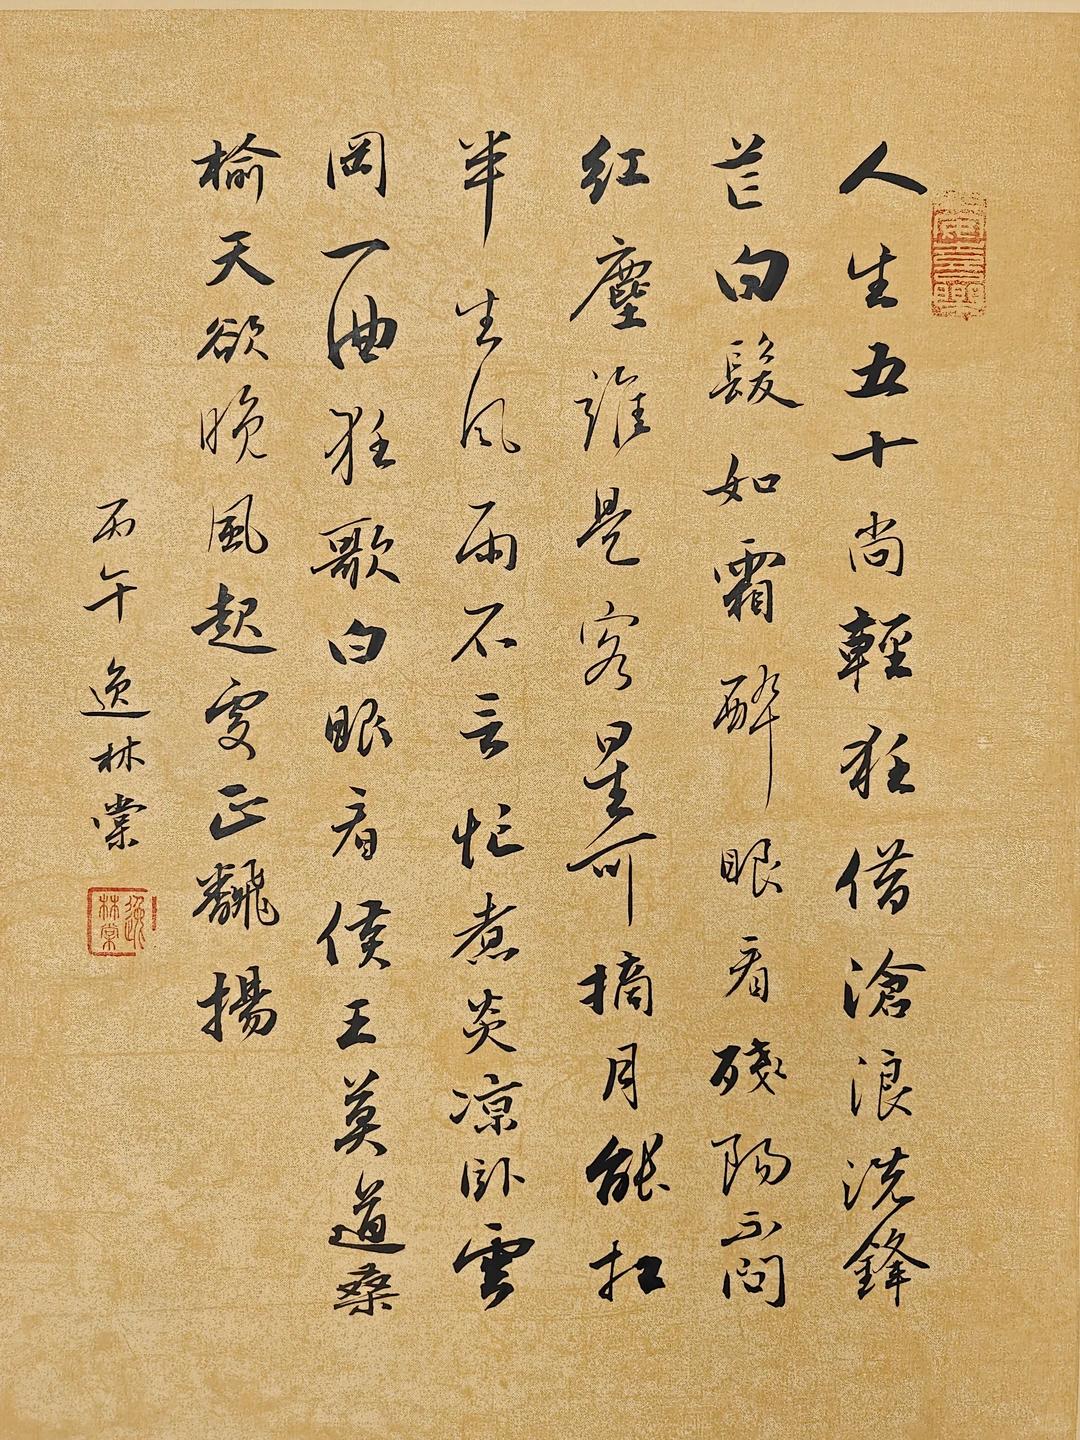 人生五十尚輕狂借滄浪洗鋒
芒白髮如霜醉眼看殘陽不問
紅塵誰是客星可摘月能扛
半生風雨不言忙煮炎凉臥雲
岡一曲狂歌白眼看侯王莫道桑
榆天欲晚風起處正飄揚
丙午逸林棠
逸林棠